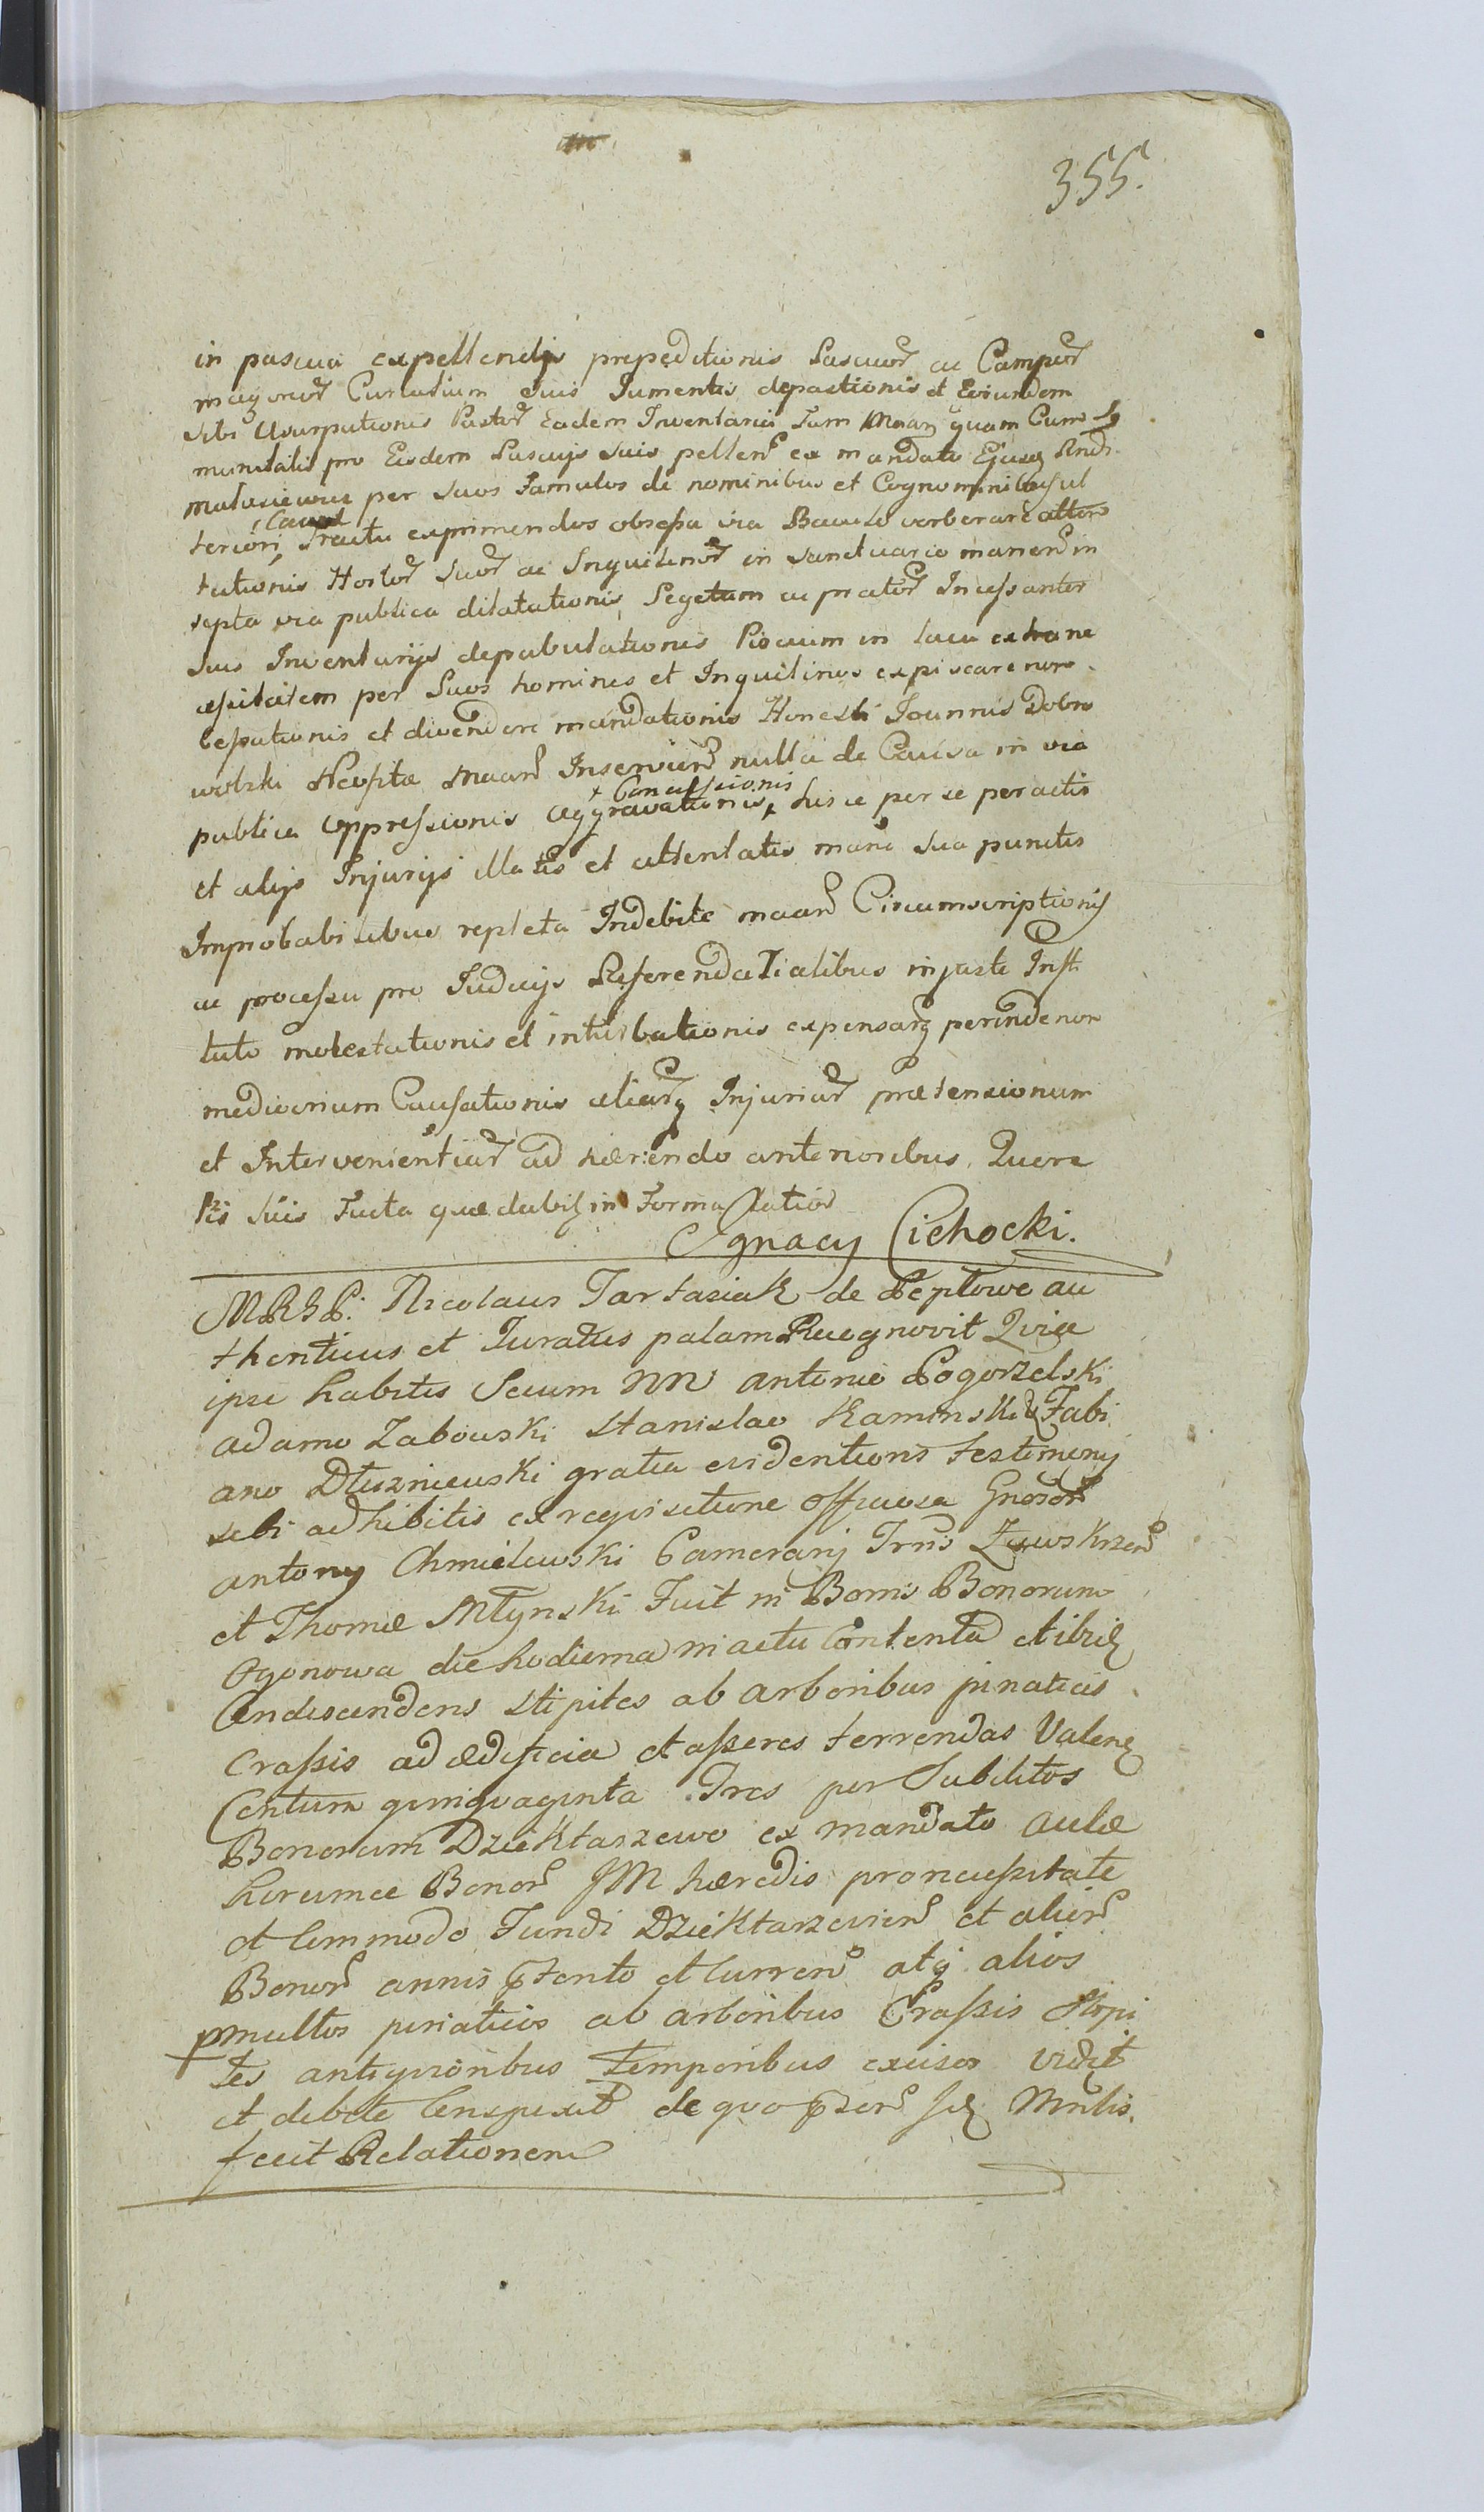 355.
in pascua expellendis prepeditionis Pascuor ac Campor
magoror Curatium suis Jumentis depastionis et Eorundem
sibi Usurpationis Pastor Eadem Inventaria Tam quam Cum
munitatis pro Eisdem Pascujs suis pellen ex mandato Ejusq Andr
matusiewicz per suos Famulos de nominibus et Cognominibus ul
teriori Caus Tractu exprimendos obsessa via Baculo verberare atten
tationis Hortor suor ac Inquilinor in sanctuario manen in
septa via publica dilatationis Segetum ac prator Incessanter
suis Inventarijs depabulationis Piscium in lacu extra ne
cessitatem per Suos homines et Inquilinos expiscare non
cessationis et divendere mandationis Honesti Joannis Dobro
wolski Neofitæ Maan Inservien nulla de Causa in via
publica oppressionis aggravationis, + Concussionis husce per se peractis
et alijs Injurijs illatis et attentatis mani sua punctis
Improbabilibus repleta Indebite maan Circumscriptionis
ac processu pro Judicijs Referendarialibus injuste Insti
tuto molestationis et inturbationis expensarq perinde non
mediocrium Causationis aliarq Injuriar prætensionum
et Intervenientiar ad hærendo anterioribus Quere
lis suis Facta quæ dabit in Forma Latior
Ignacy Cichocki.
MRSP. Nicolaus Tartasiak de Peplowo au
thenticus et Juratus palam Recognovit Quia
ipse habitis Secum NN Antonio Pogorzelski
Adamo Zabowski Stanislao Kaminski & Fabi
ano Dłuzniewski gratia evidentioris testimonij
sibi adhibitis ex requisitione officiosa Gnosor
Antony Chmielewski Camerarij Trris Zawskrzen
et Thomæ Młynski Fuit in Bonis Bonorum
Ogonowa die hodierna in actu Contenta et ibid
Condescendens stipites ab arboribus pinaticis
Crassis ad ædificia et asseres terrendas Valen
Centum quinquaginta Tres per Subditos
Bonorum Dziektarzewo ex mandato aulæ
horumce Bonor JM hæredis pro necessitate
et Commodo Fundi Dziektarzewien et alior
Bonor annis ptento et Curren atq alios
pmultos piniaticos ab arboribus Crassis stipi
tes antiquioribus temporibus excisos vidit
et debite Conspexit de quo pzen sq Mnlis.
fecit Relationem